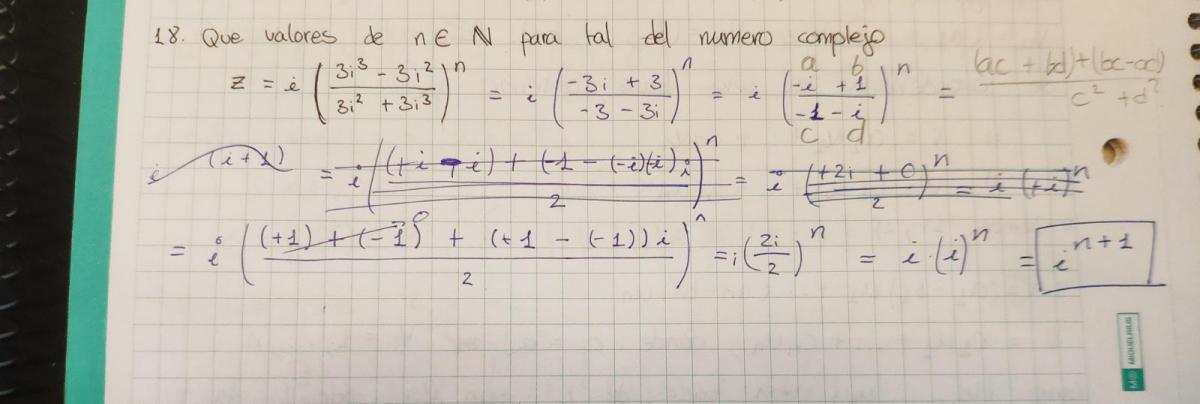 18. Que valores de n ∈ N para tal del numero complejo
z = i ( (3i³ - 3i²) / (3i² + 3i³) )ⁿ = i ( (-3i + 3) / (-3 - 3i) )ⁿ = i ( (-i + 1) / (-1 - i) )ⁿ = ((ac + bd) + (bc - ad)) / (c² + d²)
a b
c d
i (i+1) = i ( ((+i - i) + (-1 - (-i)(-i)) i) / 2 )ⁿ = i ( (+2i + 0) / 2 )ⁿ = i (+i)ⁿ
= i ( ((+1) + (-1) + (+1 - (-1)) i) / 2 )ⁿ = i ( 2i / 2 )ⁿ = i · (i)ⁿ = iⁿ⁺¹
MIQUELRIUS